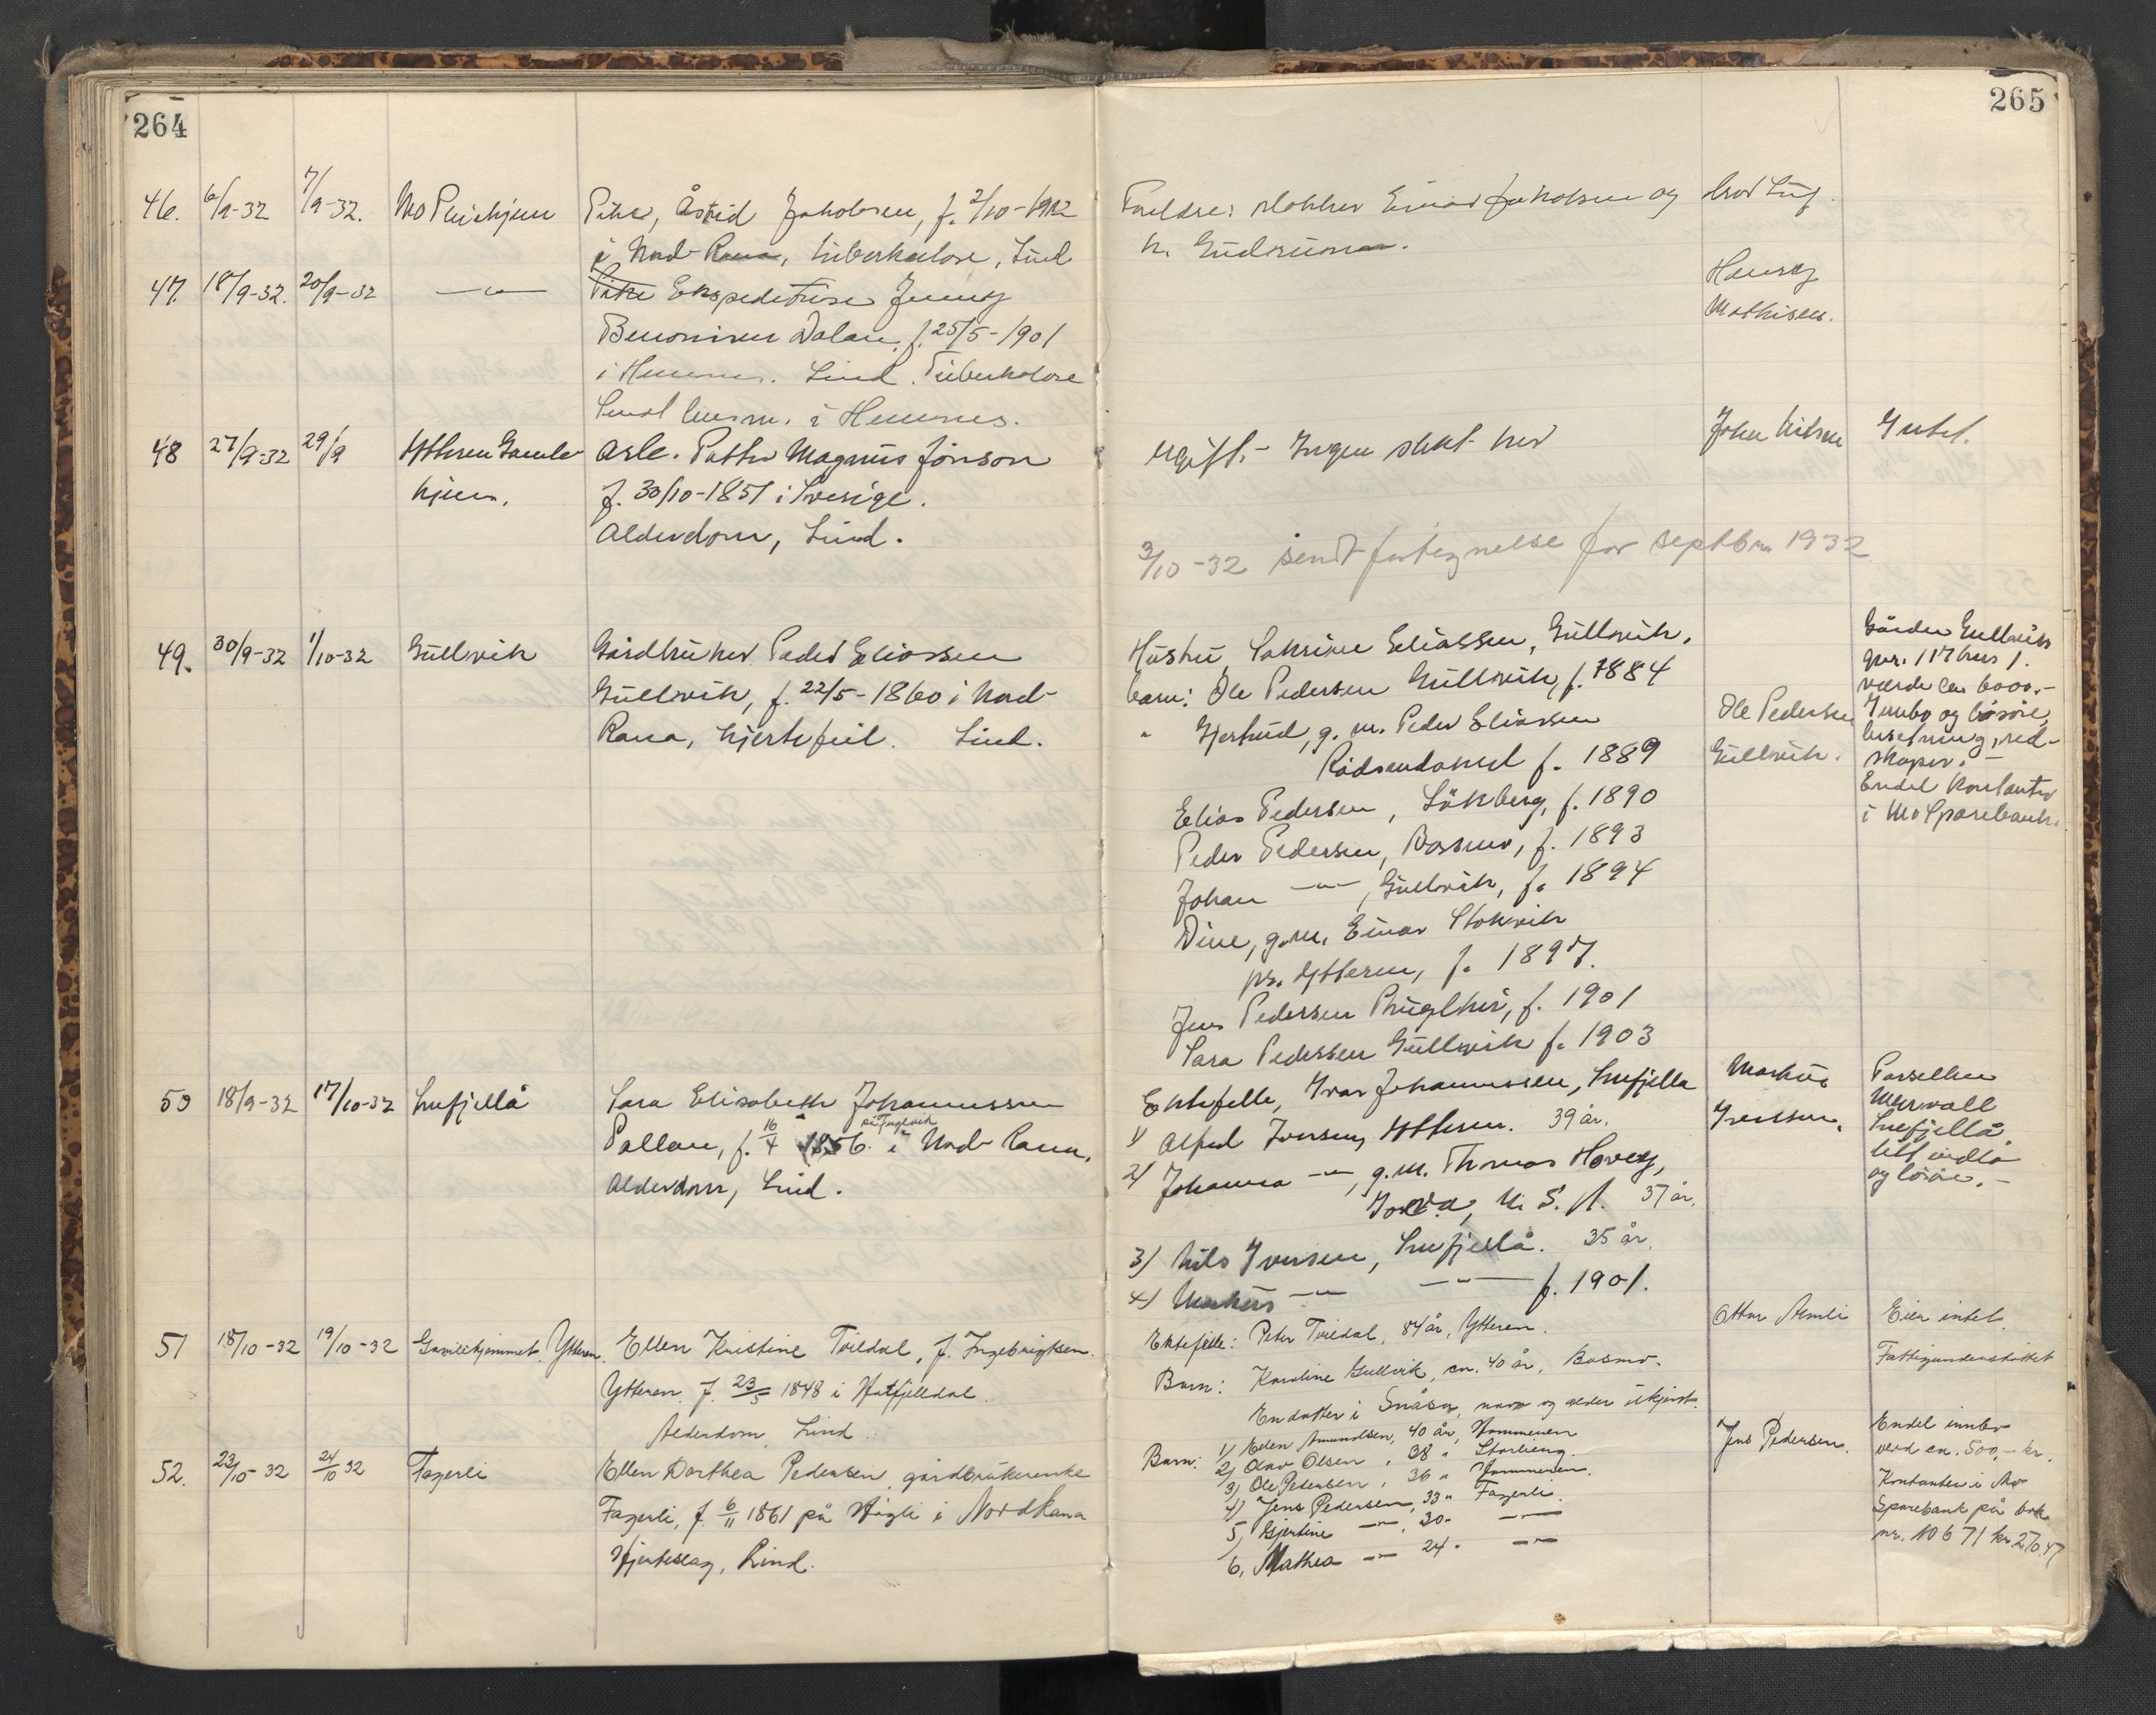 264
46. 6/9-32 7/9-32. Mo Pleiehjem Pike, Åstrid Jakobsen, f. 2/10-1912
i Nord-Rana, tuberkulose, Lind
47. 18/9-32. 20/9-32 —"— Pike Ekspeditrise Jenny
Benonisen Dalan, f. 25/5-1901
i Hemnes. Lind. Tuberkulose
Sendt lensm. i Hemnes.
48 27/9-32 29/9 Ytteren Gamle arb. Petter Magnus Jönson
hjem. f. 30/10-1851 i Sverige.
Alderdom, Lind.
49. 30/9-32 1/10-32 Gullvik Gårdbruker Peder Eliassen
Gullvik, f. 22/5-1860 i Nord-
Rana, hjertefeil. Lind.
50 18/9-32 17/10-32 Snefjellå Sara Elisabeth Johannessen
Pallan, f. 16/4 1856. i Nord-Rana,
Alderdom, Lind.
51 18/10-32 19/10-32 Gamlehjemmet Ytteren. Ellen Kristine Tveldal, f. Ingebrigtsen.
Ytteren f. 23/5 1848 i Hatfjelldal.
Alderdom, Lind.
52. 23/10-32 24/10 32 Fagerli Ellen Dorthea Pedersen, gårdbrukerenke
Fagerli, f. 6/11 1861 på i Nord Rana
Hjerteslag, Lind.
265
Foreldre: Einar Jakobsen og
h. Gudrun.
Henry
Mathisen.
ugift. – Ingen slekt her John Nilsen Intet.
3/10-32 sendt fortegnelse for septbr. 1932
Hustru, Sakrine Eliassen, Gullvik. Gården Gullvik
gnr. 117 bnr 1.
barn: Ole Pedersen Gullvik, f. 1884 verde ca. 6000.-
" Gjertrud, g. m. Peder Eliassen Ole Pedersen Innbo og løsøre,
Rödsandamel f. 1889 Gullvik. besetning, red-
skaper. –
Elias Pedersen, Lökberg, f. 1890 Endel kontanter
i Mo Sparebank.
Peder Pedersen, Bossmo, f. 1893
Johan —"—, Gullvik, f. 1894
Dine, g.m. Einar Stokvik
pr. Ytteren, f. 1897.
Jens Pedersen, f. 1901
Sara Pedersen Gullvik f. 1903
Ektefelle, Ivar Johannessen, Snefjellå Markus Parsellen
Iversen. Snefjellå,
1) Alfred Iversen, Ytteren. 39 år. litt indbo
2) Johanna —"—, g.m. Thomas Hovey, og løsøre. –
Iowa, U. S. A. 37 år.
3) Nils Iversen, Snefjellå. 35 år.
4) Markus —"— —"— f. 1901.
Ektefelle: Peter Tveldal, 84 år, Ytteren. Ottar Eier intet.
Barn: Karoline Gullvik, ca. 40 år, Bosmo. Fattigunderstøttet
En datter i Snåsa, navn og alder ukjent.
Barn: 1) Eden Amundsen, 40 år, Hammeren Jens Pedersen. Endel innbo
2) Olav Olsen, 38 " Storlieng. verd ca. 500,- kr.
3) Ole Pedersen, 36 " Hammeren. Kontanter i Mo
4) Jens Pedersen, 33 " Fagerli. Sparebank på bok
5) Gjertine —"—, 30 " —"— nr. 10671 kr. 270.47
6, Mathea —"— 24 " —"—